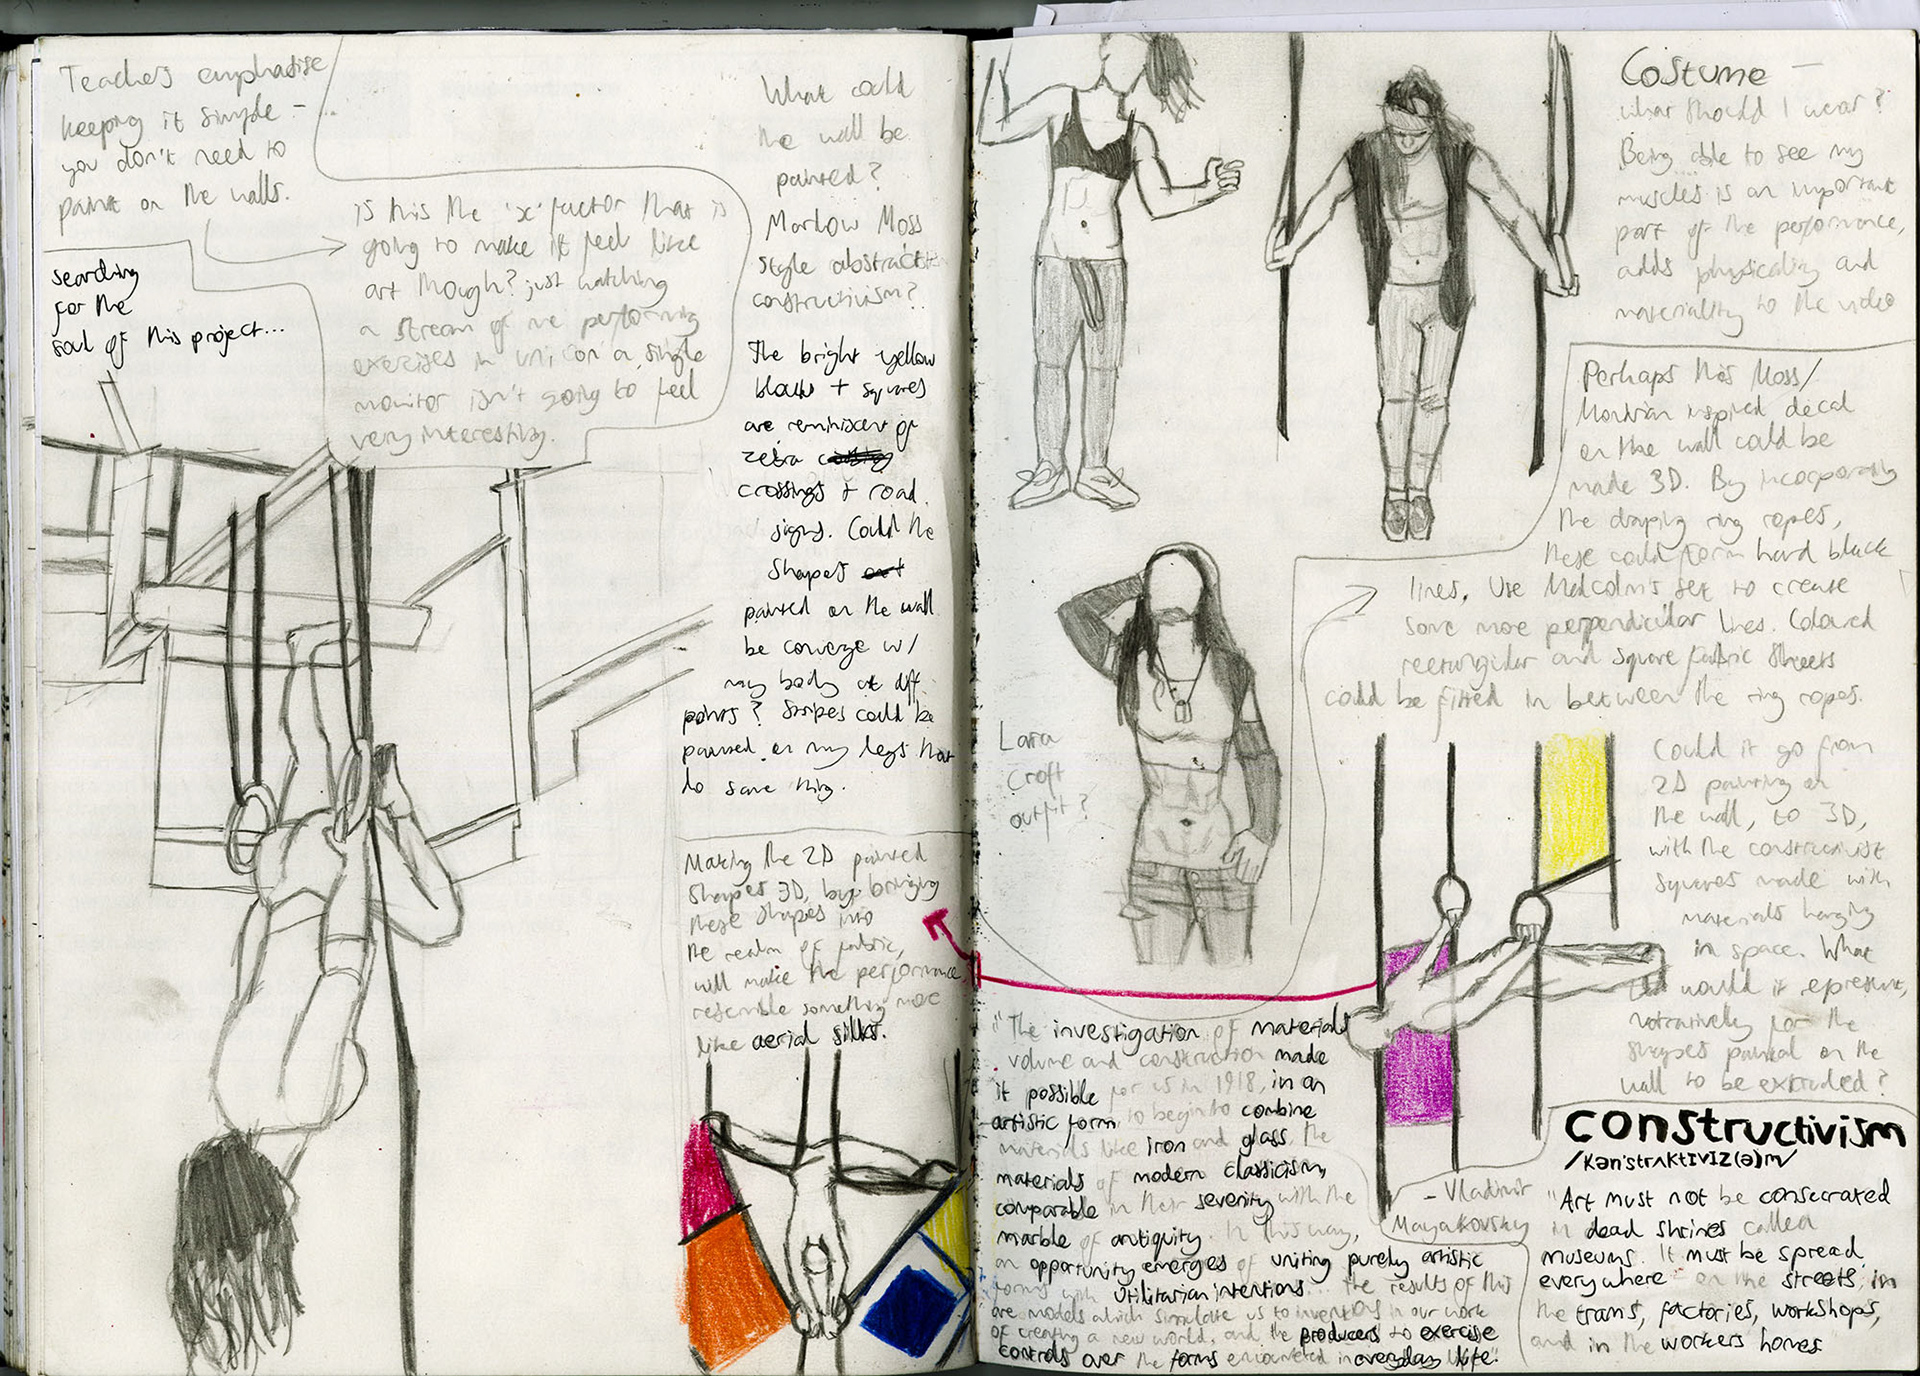 Teachers emphasise
keeping it simple –
you don't need to
paint on the walls.
searching
for the
soul of this project...
is this the 'x' factor that is
going to make it feel like
art though? just watching
a stream of me performing
exercises in unicorn on a single
monitor isn't going to feel
very interesting.
What could
the wall be
painted?
Marlow Moss
style abstract
constructivism?
The bright yellow
blocks + squares
are reminiscent of
zebra
crossings + road
signs. Could the
shapes
painted on the wall
be converge w/
my body at diff.
points? Stripes could be
painted on my legs that
do same thing.
Making the 2D painted
shapes 3D, by bringing
these shapes into
the realm of fabric,
will make the performance
resemble something more
like aerial silks.
Costume –
what should I wear?
Being able to see my
muscles is an important
part of the performance,
adds physicality and
materiality to the video
Perhaps this Moss/
Mondrian inspired decal
on the wall could be
made 3D. By incorporating
the draping ring ropes,
these could form hard black
lines. Use Malcolm's set to create
some more perpendicular lines. Coloured
rectangular and square fabric streets
could be fitted in between the ring ropes.
Lara
Croft
outfit?
Could it go from
2D painting on
the wall, to 3D,
with the constructivist
squares made with
materials hanging
in space. What
would it represent,
narratively for the
shapes painted on the
wall to be extruded?
"The investigation of materials
volume and construction made
it possible for us in 1918, in an
artistic form, to begin to combine
materials like iron and glass, the
materials of modern classicism,
comparable in their severity with the
marble of antiquity. In this way,
an opportunity emerges of uniting purely artistic
forms with utilitarian intentions... the results of this
are models which stimulate us to inventions in our work
of creating a new world, and the producers to exercise
controls over the forms encountered in everyday life."
– Vladimir
Mayakovsky
constructivism
/kən'strʌktɪvɪz(ə)m/
"Art must not be consecrated
in dead shrines called
museums. It must be spread
everywhere – on the streets, in
the trams, factories, workshops,
and in the workers homes